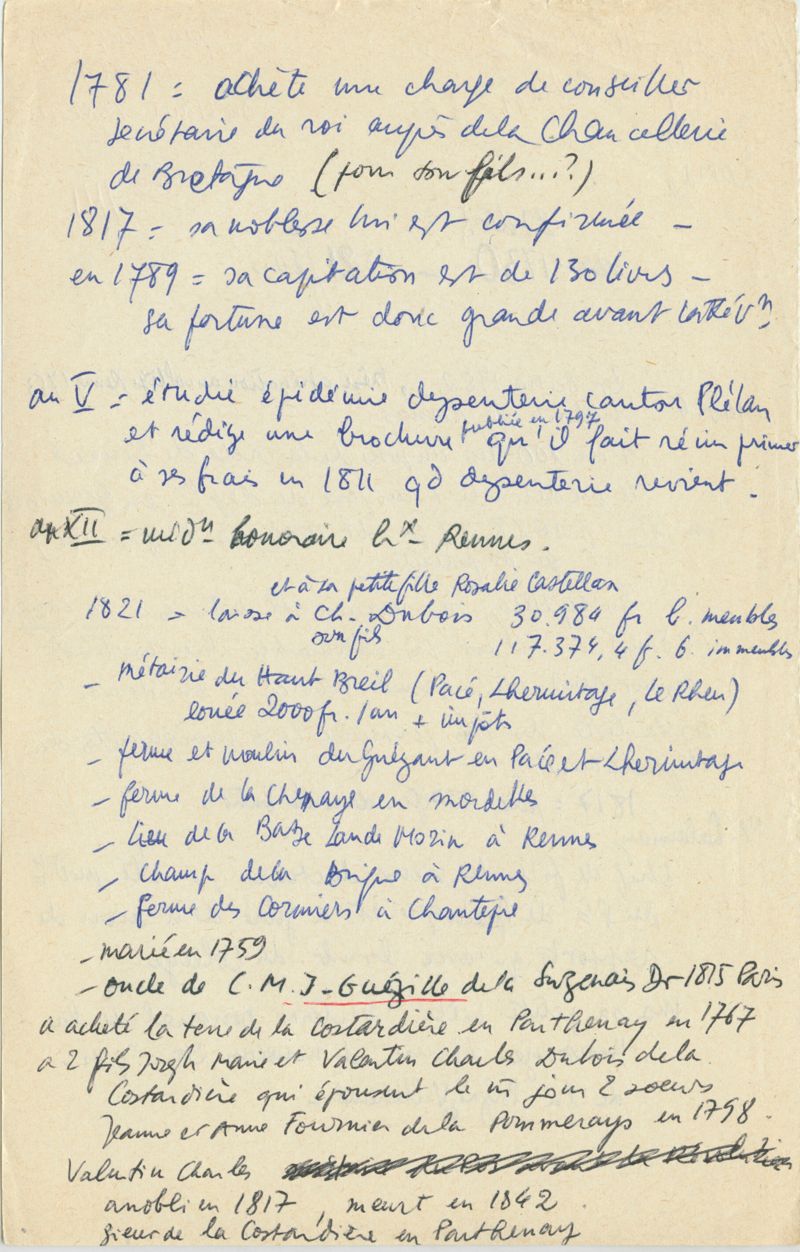 1781 = achète une charge de conseiller
secrétaire du roi auprès de la Chancellerie
de Bretagne (pour son fils...?)
1817 = sa noblesse lui est confirmée –
en 1789 = sa capitation est de 130 livres –
sa fortune est donc grande avant la Rév.n
an V = étudie épidémie dysenterie canton Plélan
et rédige une brochure publiée en 1797 qu'il fait réimprimer
à ses frais en 1811 qd dysenterie revient.
an XII = méd.n honoraire hx Rennes.
et à sa petite fille Rosalie Castellan
1821 = laisse à Ch. Dubois 30.984 fr b. meubles
son fils 117.374,4 f. b. immeubles
– métairie du Haut Breil (Pacé, Lhermitage, le Rheu)
louée 2000 fr. / an + impôts
– ferme et moulin du Guégant en Pacé et Lhermitage
– ferme de la Chenaye en Mordelles
– lieu de la Basse Lande Morin à Rennes
– champ de la à Rennes
– ferme des Cormiers à Chantepie
– marié en 1759
– oncle de C.M.J. Guézille de la Suzenais Dr 1815 Paris
a acheté la terre de la Costardière en Parthenay en 1767
a 2 fils Joseph Marie et Valentin Charles Dubois de la
Costardière qui épousent le m̂ jour 2 soeurs
Jeanne et Anne Fournier de la Pommerays en 1798.
Valentin Charles
anobli en 1817, meurt en 1842.
sieur de la Costardière en Parthenay